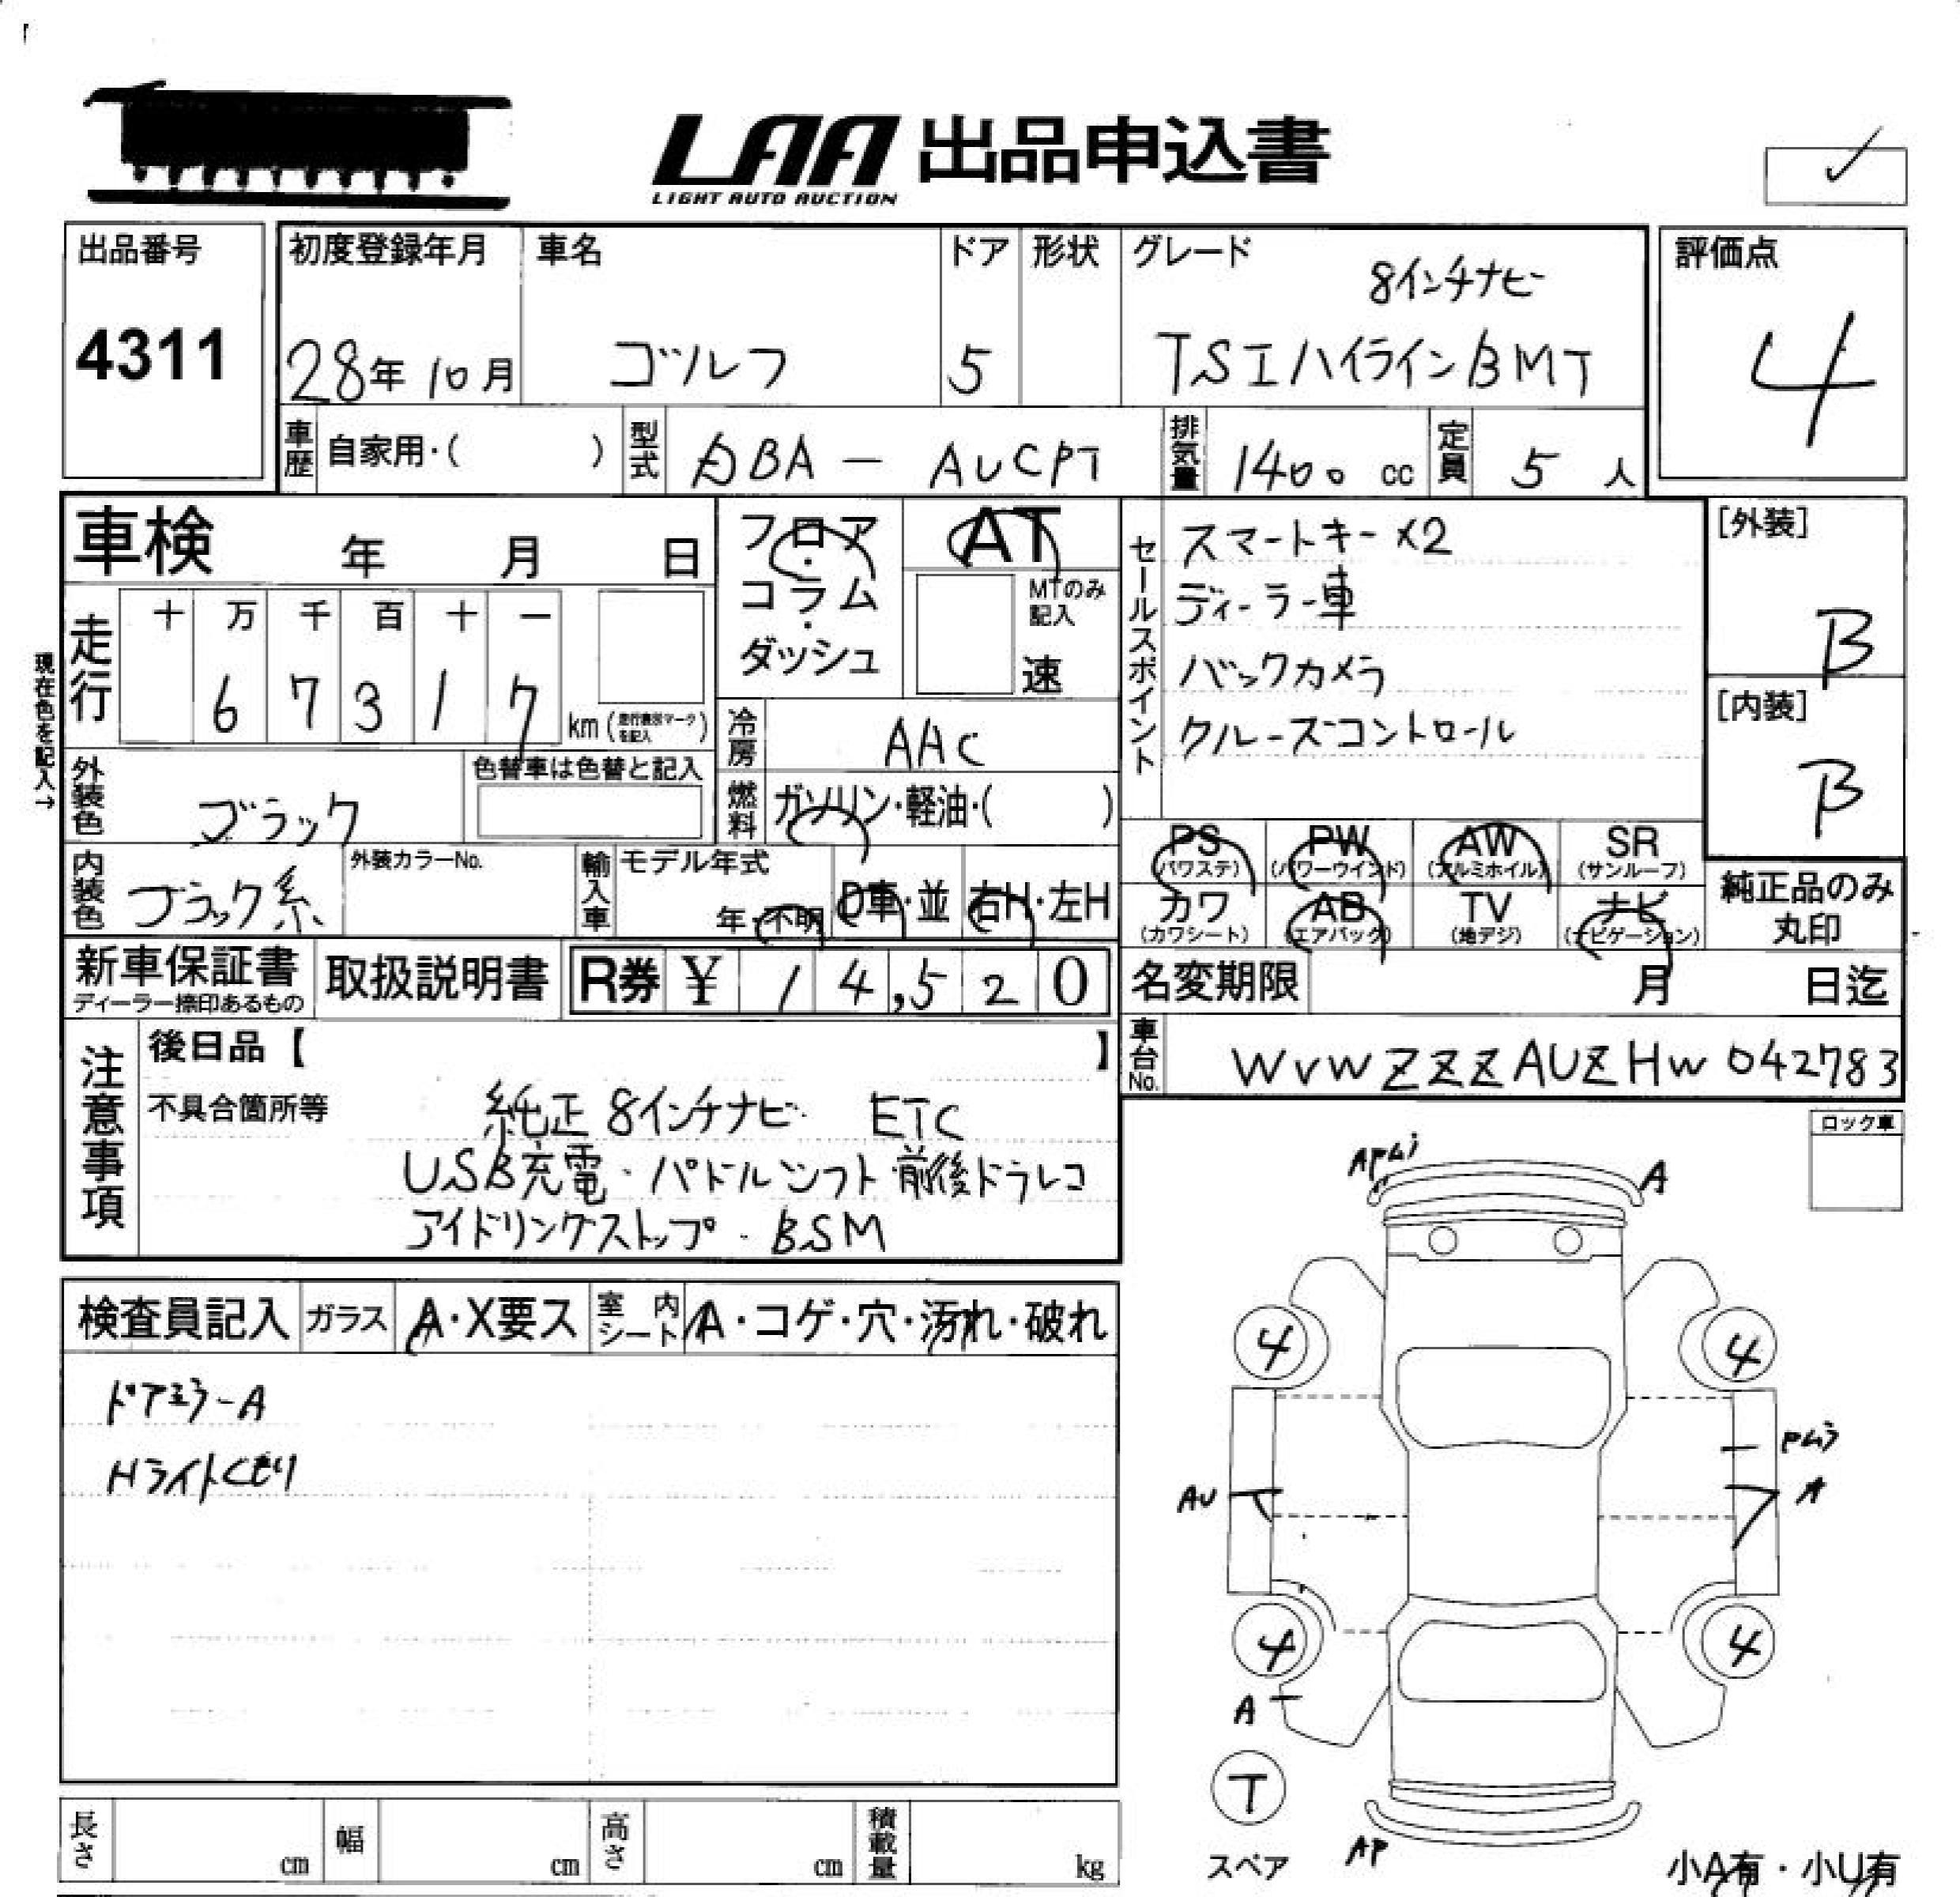 LAA 出品申込書
LIGHT AUTO AUCTION
出品番号
4311
初度登録年月
28年 10月
車名
ゴルフ
ドア
5
形状
グレード
8インチナビ
TSIハイラインBMT
評価点
4
車歴
自家用・( )
型式
DBA - AUCPT
排気量
1400 cc
定員
5 人
車検 年 月 日
フロア・コラム・ダッシュ
AT
MTのみ記入
速
セールスポイント
スマートキー×2
ディーラー車
バックカメラ
クルーズコントロール
[外装]
B
[内装]
B
現在色を記入→
走行
十 万 千 百 十 一
6 7 3 1 7
km (走行換算マークを記入)
冷房
AAC
外装色
ブラック
色替車は色替と記入
燃料
ガソリン・軽油・( )
内装色
ブラック系
外装カラーNo.
輸入車
モデル年式
年・不明
D車・並
右H・左H
PS (パワステ)
PW (パワーウインド)
AW (アルミホイル)
SR (サンルーフ)
カワ (カワシート)
AB (エアバック)
TV (地デジ)
ナビ (ナビゲーション)
純正品のみ丸印
新車保証書
ディーラー捺印あるもの
取扱説明書
R券 ¥ 14,520
名変期限 月 日迄
車台No.
WVWZZZAUZHW042783
注意事項
後日品【 】
不具合箇所等
純正8インチナビ ETC
USB充電・パドルシフト 前後ドラレコ
アイドリングストップ・BSM
ロック車
検査員記入
ガラス
A・X要ス
室内シート
A・コゲ・穴・汚れ・破れ
ドアミラーA
Hライトくもり
APムラ
A
4
4
Pムラ
AU
A
4
4
A
T
スペア
AP
小A有・小U有
長さ cm
幅 cm
高さ cm
積載量 kg